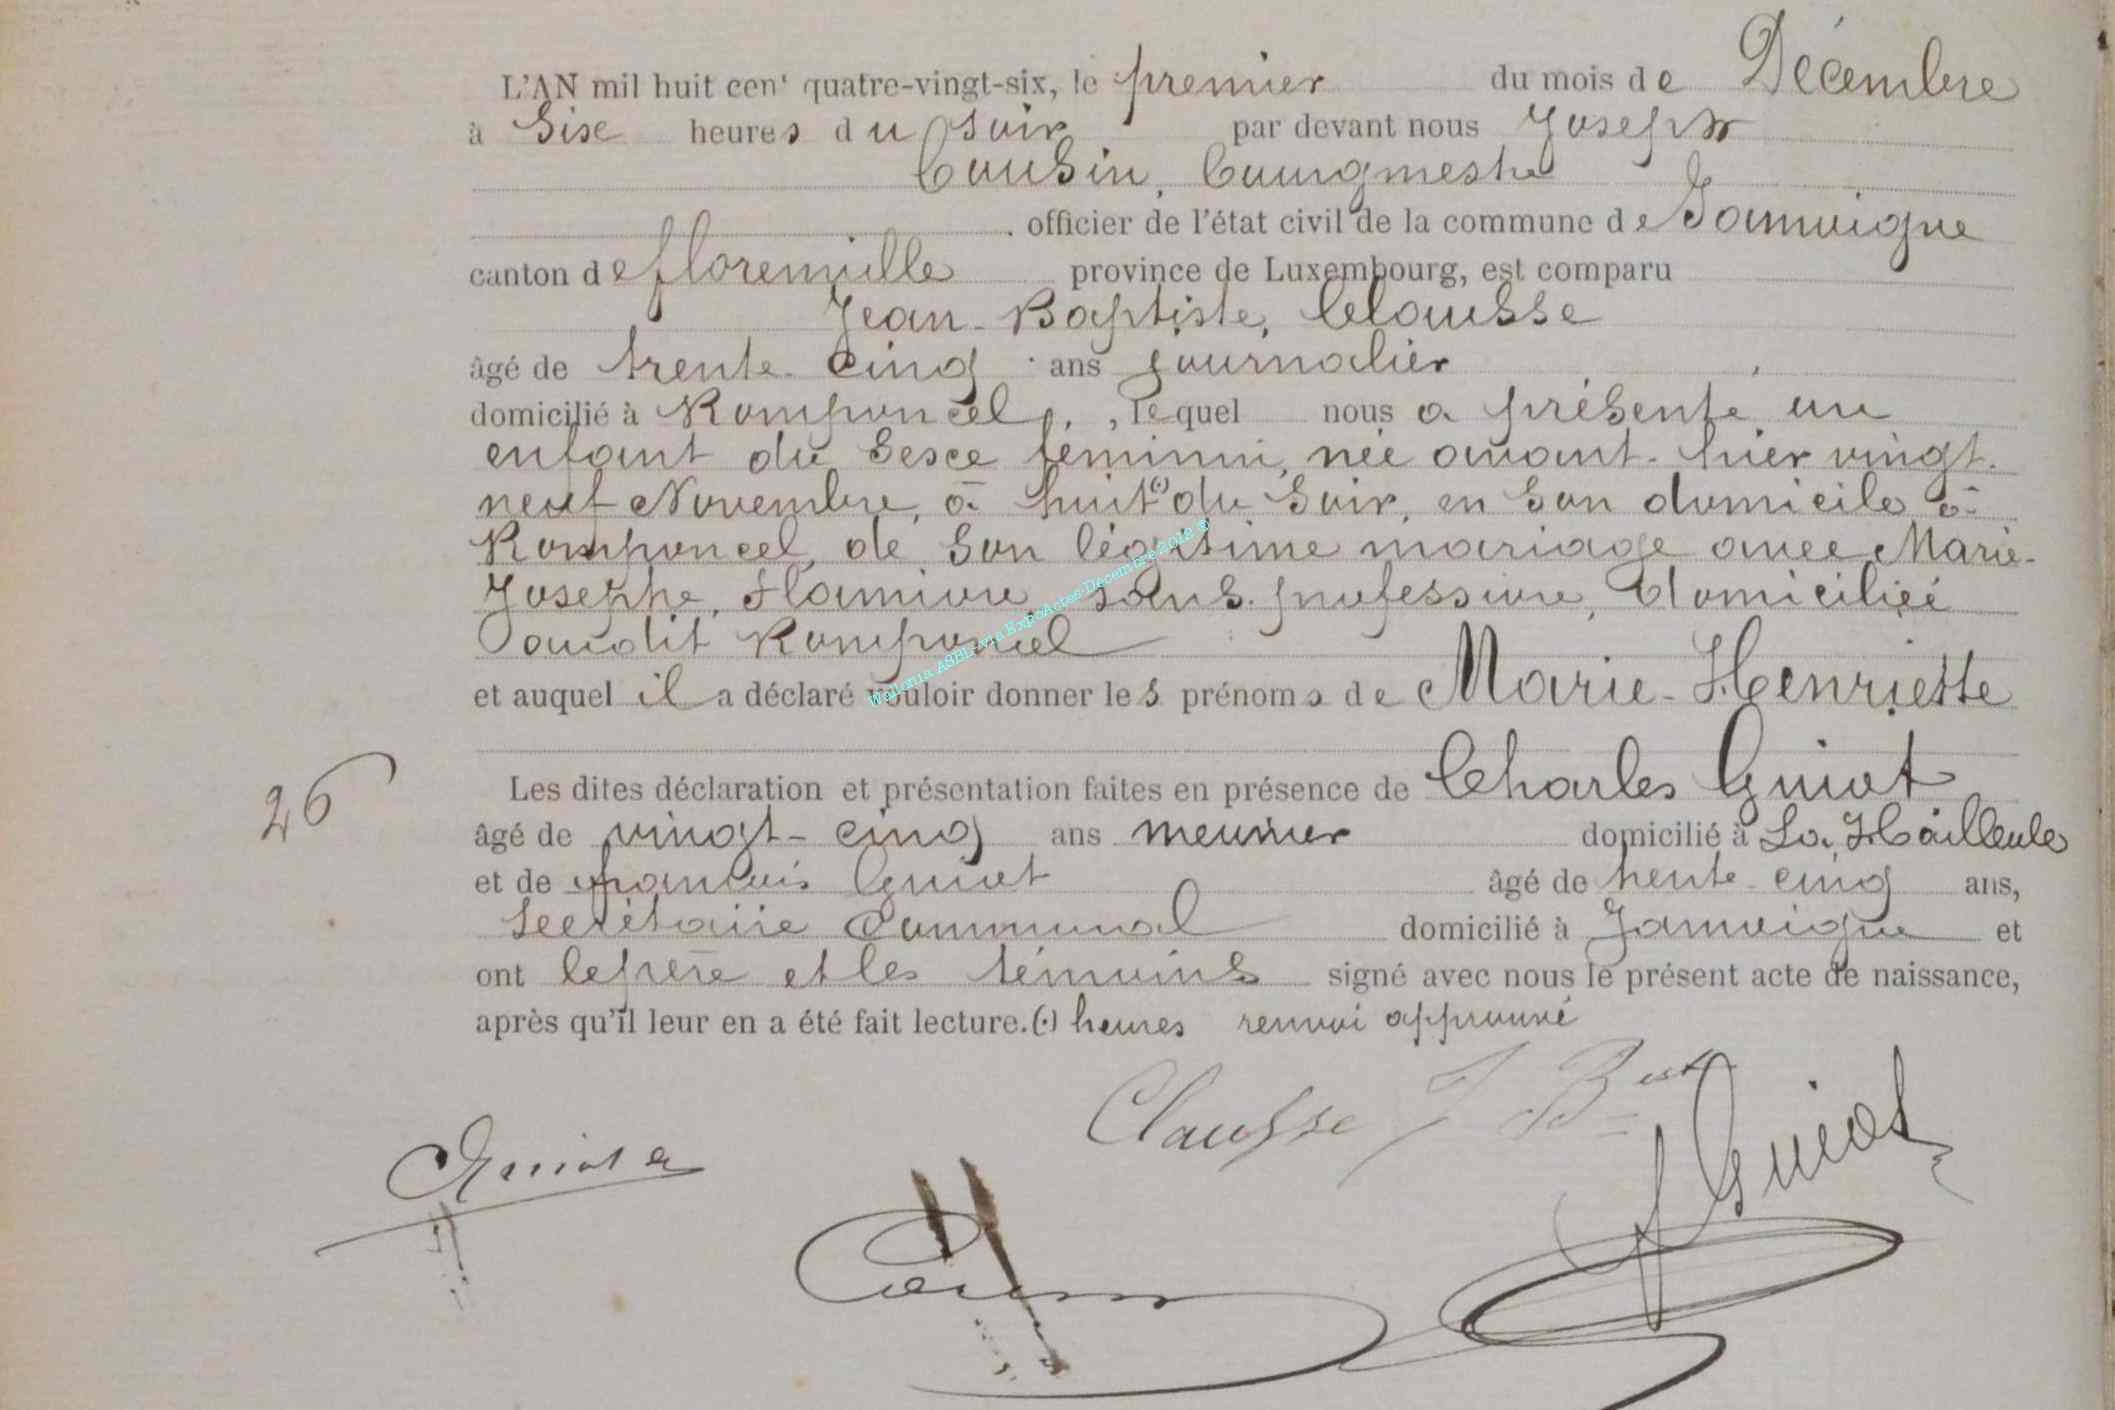 L'AN mil huit cent quatre-vingt-six, le premier du mois de Décembre
à Six heures du Soir par devant nous Joseph
Cousin, bourgmestre
officier de l'état civil de la commune de Jamoigne
canton de florenville province de Luxembourg, est comparu
Jean-Baptiste, Clausse
âgé de trente-cinq ans journalier
domicilié à Romponcel, lequel nous a présenté un
enfant du Sexe féminin, née avant-hier vingt-
neuf Novembre, à huit (.) du Soir, en Son domicile à
Romponcel, de Son légitime mariage avec Marie-
Josephe, Flamion, sans profession, domiciliée
audit Romponcel
et auquel il a déclaré vouloir donner les prénoms de Marie-Henriette
Les dites déclaration et présentation faites en présence de Charles Guiot
26
âgé de vingt-cinq ans meunier domicilié à La Hailleule
et de françois Guiot âgé de trente-cinq ans,
Secrétaire Communal domicilié à Jamoigne et
ont le père et les témoins signé avec nous le présent acte de naissance,
après qu'il leur en a été fait lecture. (.) heures renvoi approuvé
Clausse J Bste
Guiot
f Guiot
Cousin
Wallonia ASBL via ExpoActes-Décembre 2012 ©